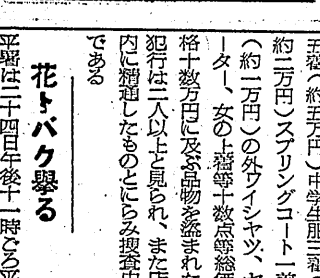 五着(約五万円)中学生服三着(
約二万円)スプリングコート一着
(約一万円)の外ワイシャツ、セ
ーター、女の上着等十数点等総価
格十数万円に及ぶ品物を盗まれた
犯行は二人以上と見られ、また店
内に精通したものとにらみ捜査中
である
花トバク擧る
平署は二十四日午後十一時ごろ平